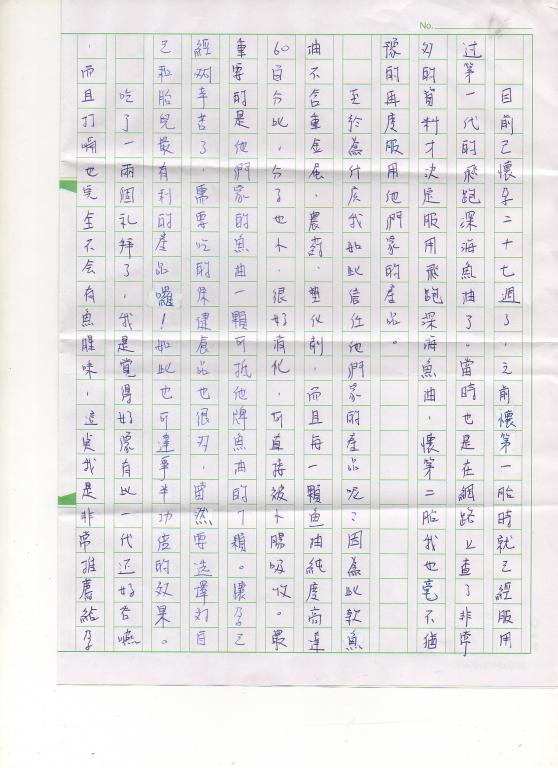 No.
目前已懷孕二十七週了，之前懷第一胎時就已經服用
过第一代的飛跑深海魚油了。當時也是在網路上查了非常
多的資料才決定服用飛跑深海魚油，懷第二胎我也毫不猶
豫的再度服用他們家的產品。
至於為什麼我如此信任他們家的產品呢？因為此款魚
油不含重金屬、農药、塑化劑，而且每一顆魚油純度高達
60百分比，分子也小，很好液化，可直接被小腸吸收。最
重要的是他們家的魚油一顆可抵他牌魚油的7顆。懷孕已
經夠辛苦了，需要吃的保健食品也很多，當然要選擇对自
己和胎兒最有利的產品囉！如此也可達事半功倍的效果。
吃了一兩個礼拜了，我是覺得好像有比一代还好吞嚥
，而且打嗝也完全不会有魚腥味，這奌我是非常推薦給孕